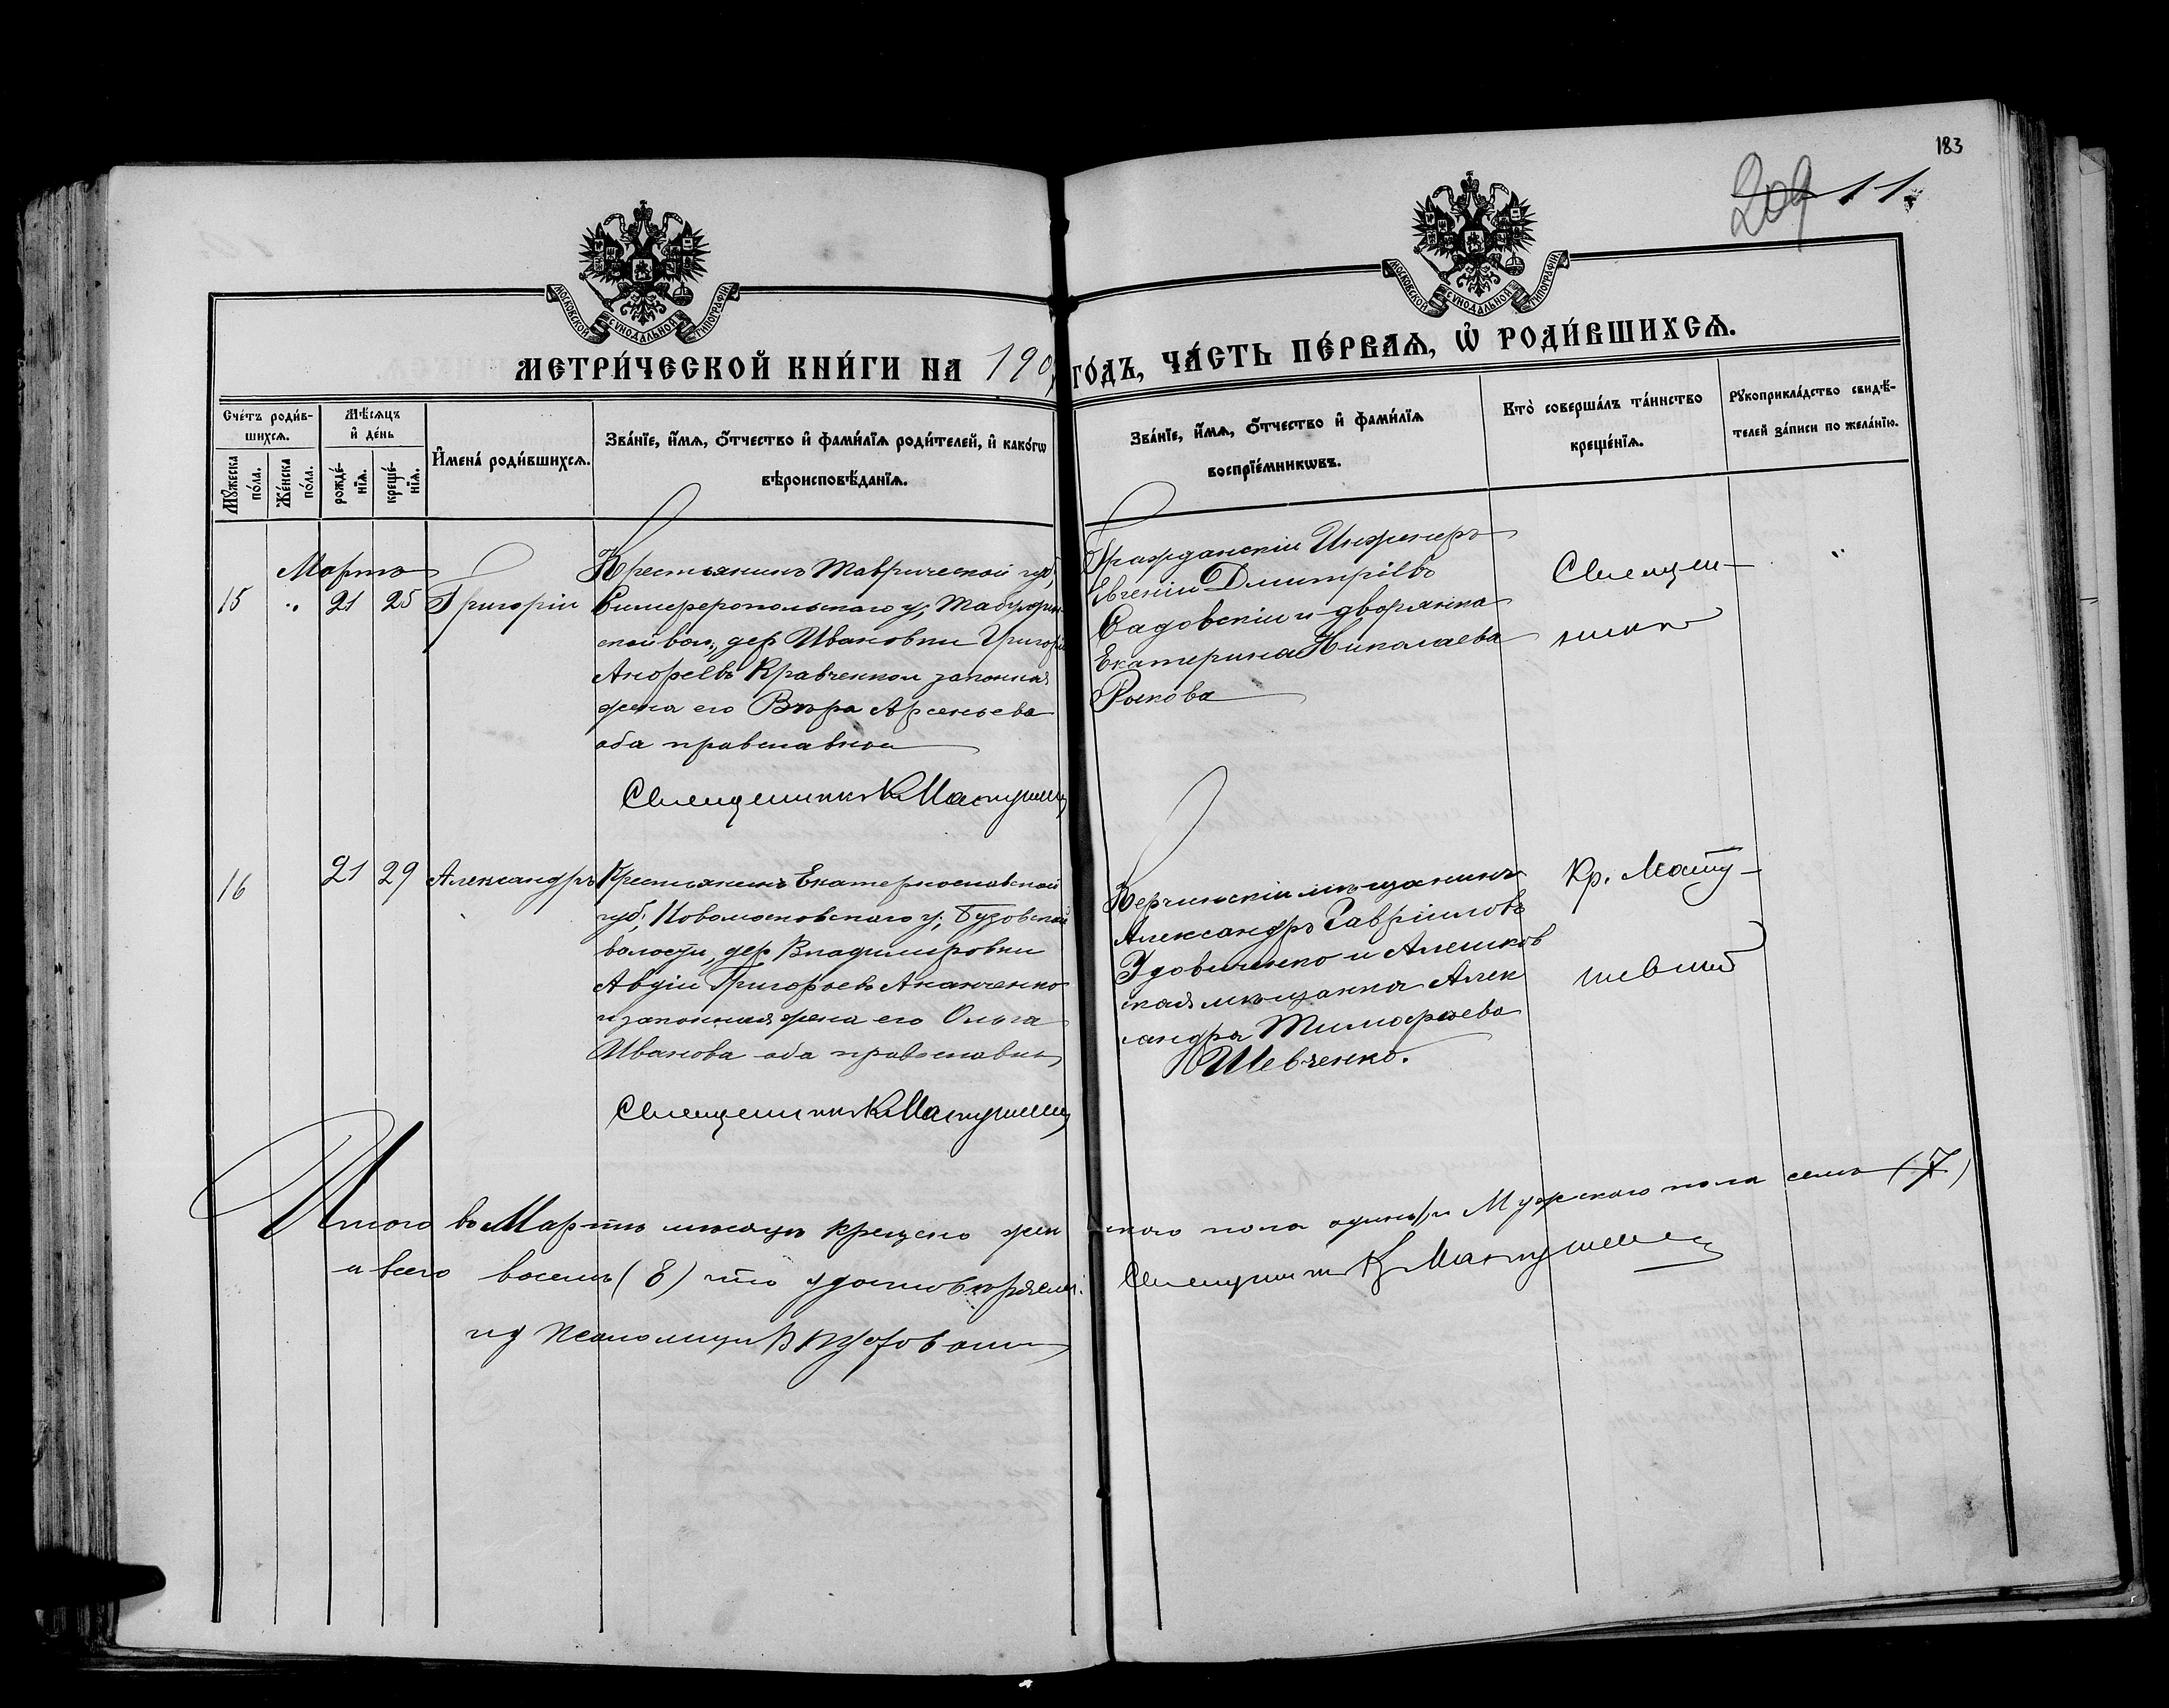 183
209 11
МОСКОВСКОЙ СѴНОДАЛЬНОЙ ТИПОГРАФІИ
МОСКОВСКОЙ СѴНОДАЛЬНОЙ ТИПОГРАФІИ
МЕТРИ́ЧЕСКОЙ КНИ́ГИ НА 190
ГО́ДЪ, ЧА́СТЬ ПЕ́РВАѦ, Ѡ҆ РОДИ́ВШИХСѦ.
Сче́тъ роди́в-
шихсѧ.
Мꙋ́жеска по́ла.
Же́нска по́ла.
Мѣ́сѧцъ
и҆ де́нь
рожде́-нїѧ.
креще́-нїѧ.
И҆мена̀ роди́вшихсѧ.
Зва́нїе, и҆́мѧ, ѻ҆́тчество и҆ фами́лїѧ роди́телей, и҆ како́гѡ
вѣроисповѣ́данїѧ.
Зва́нїе, и҆́мѧ, ѻ҆́тчество и҆ фами́лїѧ
воспрїе́мникѡвъ.
Кто̀ соверша́лъ та́инство
креще́нїѧ.
Рꙋкоприкла́дство свидѣ́-
телей за́писи по жела́нїю.
Мартъ
15 " 21 25 Григорій
Крестьянинъ Таврической губ,
Симферопольскаго у,
ской вол., дер Ивановки Григорій
Андреевъ Кравченко и законная
жена его Вѣра Арсеньева
оба православной
Священникъ К Матушев
Гражданскій Инженеръ
Евгеній Дмитріевъ
Садовскій и дворянка
Екатерина Николаева
Рыкова
Священ-
никъ
"
16 21 29 Александръ
Крестьянинъ Екатеринославской
губ, Новомосковскаго у,
волости, дер Владимировки
Авдій Григорьевъ Ананченко
и законная жена его Ольга
Иванова оба православные
Священникъ К Матушев
Керчинскій мѣщанинъ
Александръ Гавріиловъ
Удовиченко и Алешков
ская мѣщанка Алек
сандра Тимофеева
Шевченко.
Кр. Мату-
шевскій
Итого въ Мартѣ мѣсяцѣ крещено жен
скаго пола одинъ и Мужскаго пола семь (7)
и всего восемь (8) что удостовѣряемъ:
Священникъ К Матушев
Псаломщикъ